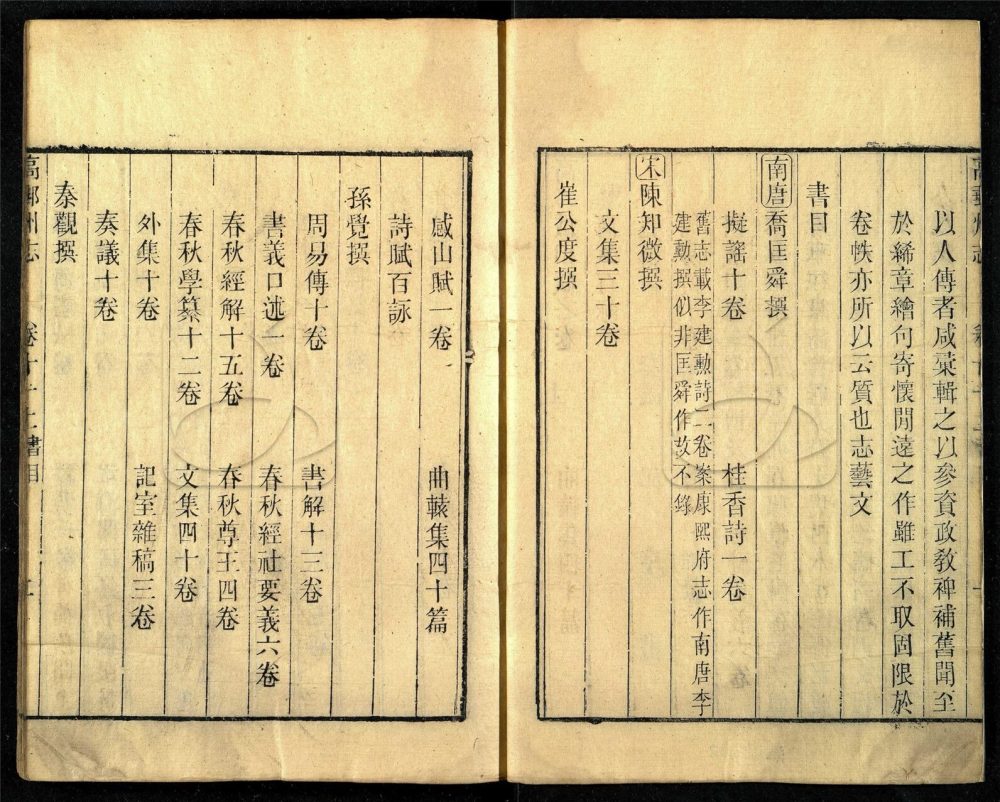 以人傳者咸彙輯之以參資政教裨補舊聞至
於絺章繪句寄懷閒遠之作雖工不取固限於
卷帙亦所以云質也志藝文
書目
南唐喬匡舜撰
擬謠十卷　桂香詩一卷
舊志載李建勳詩二卷案康熙府志作南唐李
建勳撰似非匡舜作故不錄
宋陳知微撰
文集三十卷
崔公度撰
感山賦一卷　曲轅集四十篇
詩賦百詠
孫覺撰
周易傳十卷　書解十三卷
書義口述一卷　春秋經社要義六卷
春秋經解十五卷　春秋尊王四卷
春秋學纂十二卷　文集四十卷
外集十卷　記室雜稿三卷
奏議十卷
秦觀撰
高郵州志　卷十十上書目